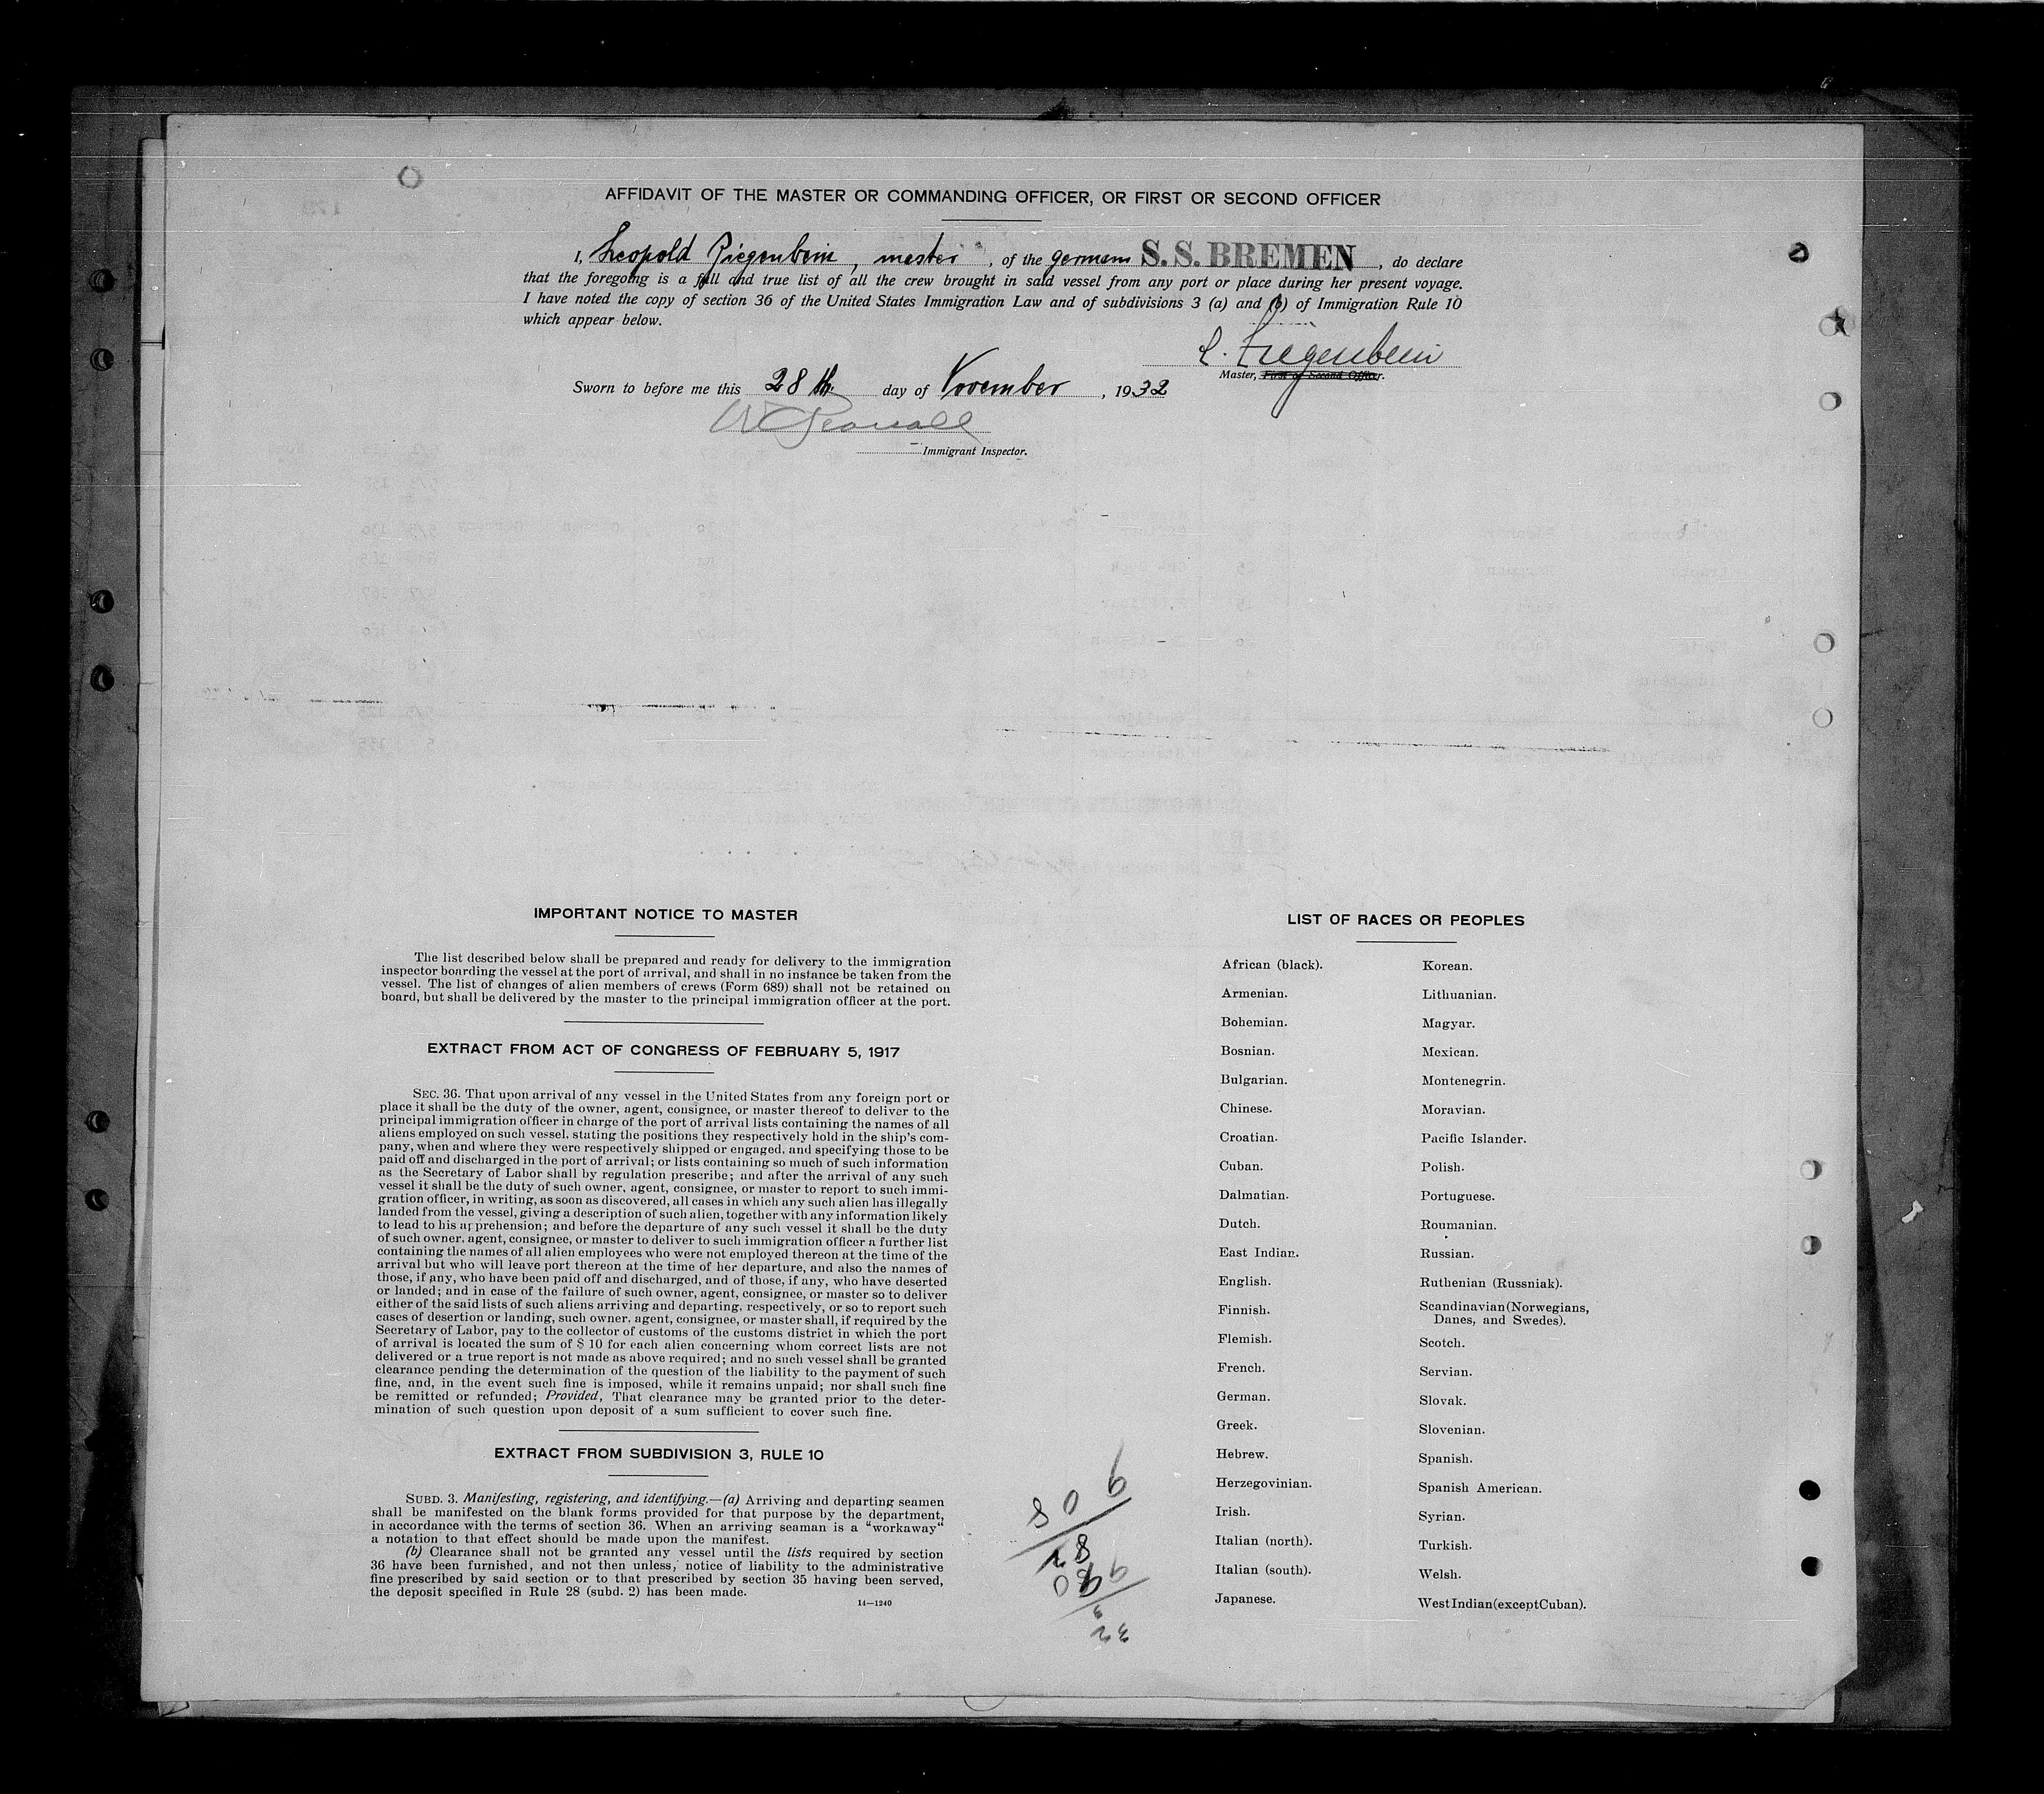 AFFIDAVIT OF THE MASTER OR COMMANDING OFFICER, OR FIRST OR SECOND OFFICER
I, Leopold Ziegenbein, master, of the german S.S. BREMEN, do declare
that the foregoing is a full and true list of all the crew brought in said vessel from any port or place during her present voyage.
I have noted the copy of section 36 of the United States Immigration Law and of subdivisions 3 (a) and (b) of Immigration Rule 10
which appear below.
L. Ziegenbein
Master, First or Second Officer.
Sworn to before me this 28th day of November, 1932
Immigrant Inspector.
IMPORTANT NOTICE TO MASTER
The list described below shall be prepared and ready for delivery to the immigration
inspector boarding the vessel at the port of arrival, and shall in no instance be taken from the
vessel. The list of changes of alien members of crews (Form 689) shall not be retained on
board, but shall be delivered by the master to the principal immigration officer at the port.
EXTRACT FROM ACT OF CONGRESS OF FEBRUARY 5, 1917
SEC. 36. That upon arrival of any vessel in the United States from any foreign port or
place it shall be the duty of the owner, agent, consignee, or master thereof to deliver to the
principal immigration officer in charge of the port of arrival lists containing the names of all
aliens employed on such vessel, stating the positions they respectively hold in the ship's com-
pany, when and where they were respectively shipped or engaged, and specifying those to be
paid off and discharged in the port of arrival; or lists containing so much of such information
as the Secretary of Labor shall by regulation prescribe; and after the arrival of any such
vessel it shall be the duty of such owner, agent, consignee, or master to report to such immi-
gration officer, in writing, as soon as discovered, all cases in which any such alien has illegally
landed from the vessel, giving a description of such alien, together with any information likely
to lead to his apprehension; and before the departure of any such vessel it shall be the duty
of such owner, agent, consignee, or master to deliver to such immigration officer a further list
containing the names of all alien employees who were not employed thereon at the time of the
arrival but who will leave port thereon at the time of her departure, and also the names of
those, if any, who have been paid off and discharged, and of those, if any, who have deserted
or landed; and in case of the failure of such owner, agent, consignee, or master so to deliver
either of the said lists of such aliens arriving and departing, respectively, or so to report such
cases of desertion or landing, such owner, agent, consignee, or master shall, if required by the
Secretary of Labor, pay to the collector of customs of the customs district in which the port
of arrival is located the sum of $ 10 for each alien concerning whom correct lists are not
delivered or a true report is not made as above required; and no such vessel shall be granted
clearance pending the determination of the question of the liability to the payment of such
fine, and, in the event such fine is imposed, while it remains unpaid; nor shall such fine
be remitted or refunded; Provided, That clearance may be granted prior to the deter-
mination of such question upon deposit of a sum sufficient to cover such fine.
EXTRACT FROM SUBDIVISION 3, RULE 10
SUBD. 3. Manifesting, registering, and identifying.—(a) Arriving and departing seamen
shall be manifested on the blank forms provided for that purpose by the department,
in accordance with the terms of section 36. When an arriving seaman is a "workaway"
a notation to that effect should be made upon the manifest.
(b) Clearance shall not be granted any vessel until the lists required by section
36 have been furnished, and not then unless, notice of liability to the administrative
fine prescribed by said section or to that prescribed by section 35 having been served,
the deposit specified in Rule 28 (subd. 2) has been made.
14—1240
LIST OF RACES OR PEOPLES
African (black).
Armenian.
Bohemian.
Bosnian.
Bulgarian.
Chinese.
Croatian.
Cuban.
Dalmatian.
Dutch.
East Indian.
English.
Finnish.
Flemish.
French.
German.
Greek.
Hebrew.
Herzegovinian.
Irish.
Italian (north).
Italian (south).
Japanese.
Korean.
Lithuanian.
Magyar.
Mexican.
Montenegrin.
Moravian.
Pacific Islander.
Polish.
Portuguese.
Roumanian.
Russian.
Ruthenian (Russniak).
Scandinavian (Norwegians,
Danes, and Swedes).
Scotch.
Servian.
Slovak.
Slovenian.
Spanish.
Spanish American.
Syrian.
Turkish.
Welsh.
West Indian (except Cuban).